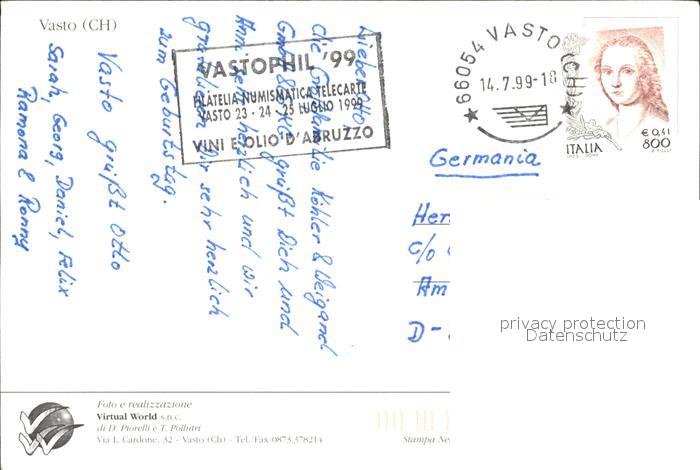 Vasto (CH)
Lieber Otto,
die Familie Köhler & Weigand
grüßt Dich und
Anni sehr herzlich und wir
gratulieren Dir sehr herzlich
zum Geburtstag.
Vasto grüßt Otto
Sarah, Georg, Daniel, Felix
Ramona & Ronny
VASTOPHIL '99
FILATELIA NUMISMATICA TELECARTE
VASTO 23 - 24 - 25 LUGLIO 1999
VINI E OLIO D'ABRUZZO
66054 VASTO (CH)
14.7.99-18
ITALIA
€ 0,41
800
Germania
Her
c/o
Am
D-
privacy protection
Datenschutz
Foto e realizzazione
Virtual World s.n.c.
di D. Piorelli e T. Pollutri
Via L. Cardone, 32 - Vasto (Ch) - Tel./Fax 0873.378214
Stampa Ne